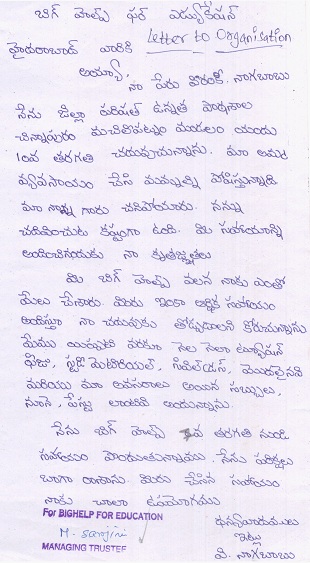 బిగ్ హెల్ప్ ఫర్ ఎడ్యుకేషన్
Letter to Organisation
హైదరాబాద్ వారికి
అయ్యా,
నా పేరు వీరంకి. నాగబాబు
నేను జిల్లా పరిషత్ ఉన్నత పాఠశాల
చిన్నాపురం మచిలీపట్నం మండలం యందు
10వ తరగతి చదువుచున్నాను. మా అమ్మ
వ్యవసాయం చేసి మమ్మల్ని పోషిస్తున్నాది
మా నాన్న గారు చనిపోయారు. నన్ను
చదివించుట కష్టంగా ఉంది. మీ సహాయాన్ని
అందించినందుకు నా కృతజ్ఞతలు
మీ బిగ్ హెల్ప్ వలన నాకు ఎంతో
మేలు చేసారు. మీరు ఇంకా ఆర్థిక సహాయం
అందిస్తూ నా చదువుకు తోడ్పడాలని కోరుచున్నాను
మేము ఇప్పటి వరకూ నెల నెలా ట్యూషన్
ఫీజు, స్టడీ మెటీరియల్, సివిల్ డ్రస్, మొదలైనవి
మరియు మా అవసరాలు అయిన సబ్బులు,
నూనె, పేస్టు లాంటివి అందున్నాను.
నేను బిగ్ హెల్ప్ వ తరగతి నుండి
సహాయం పొందుతున్నాను. నేను పరీక్షలు
బాగా రాసాను. మీరు చేసిన సహాయం
నాకు చాలా ఉపయోగము
For BIGHELP FOR EDUCATION
ధన్యవాదములు
M. Sarojini
ఇట్లు
MANAGING TRUSTEE
వి. నాగబాబు